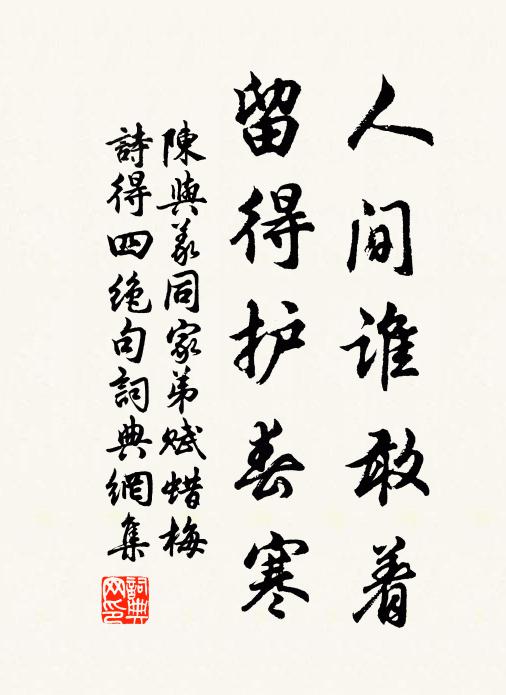 人间谁敢着
留得护春寒
陳與義同家弟賦蜡梅
詩得四绝句詞典網集
詞典
网印